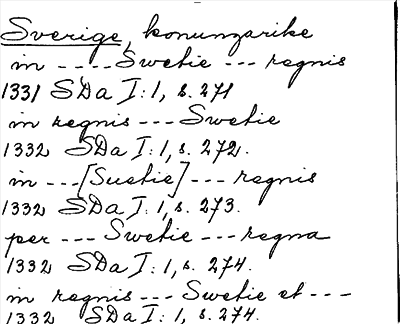 Sverige, konungarike
in ---- Swetie --- regnis
1331 SDa I:1, s. 271
in regnis --- Swetie
1332 SDa I:1, s. 272.
in --- [Suetie] --- regnis
1332 SDa I:1, s. 273.
per --- Swetie --- regna
1332 SDa I:1, s. 274.
in regnis --- Swetie et ---
1332 SDa I:1, s. 274.